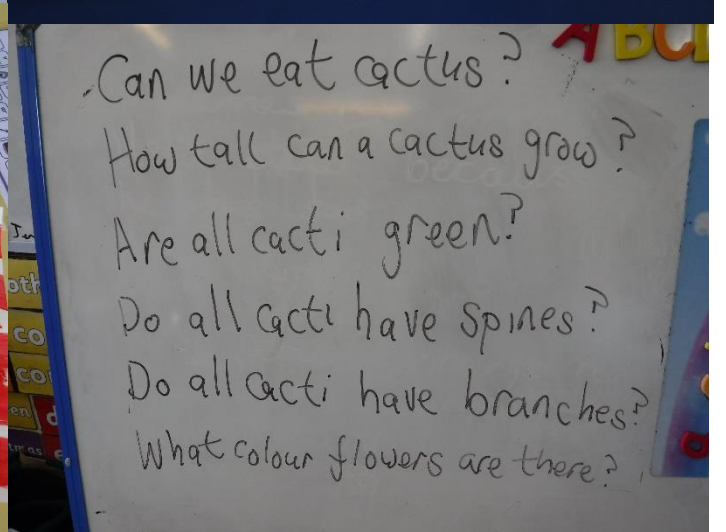 ABC
Can we eat cactus?
How tall can a cactus grow?
Are all cacti green?
Do all cacti have spines?
Do all cacti have branches?
What colour flowers are there?
oth
co
co
en d